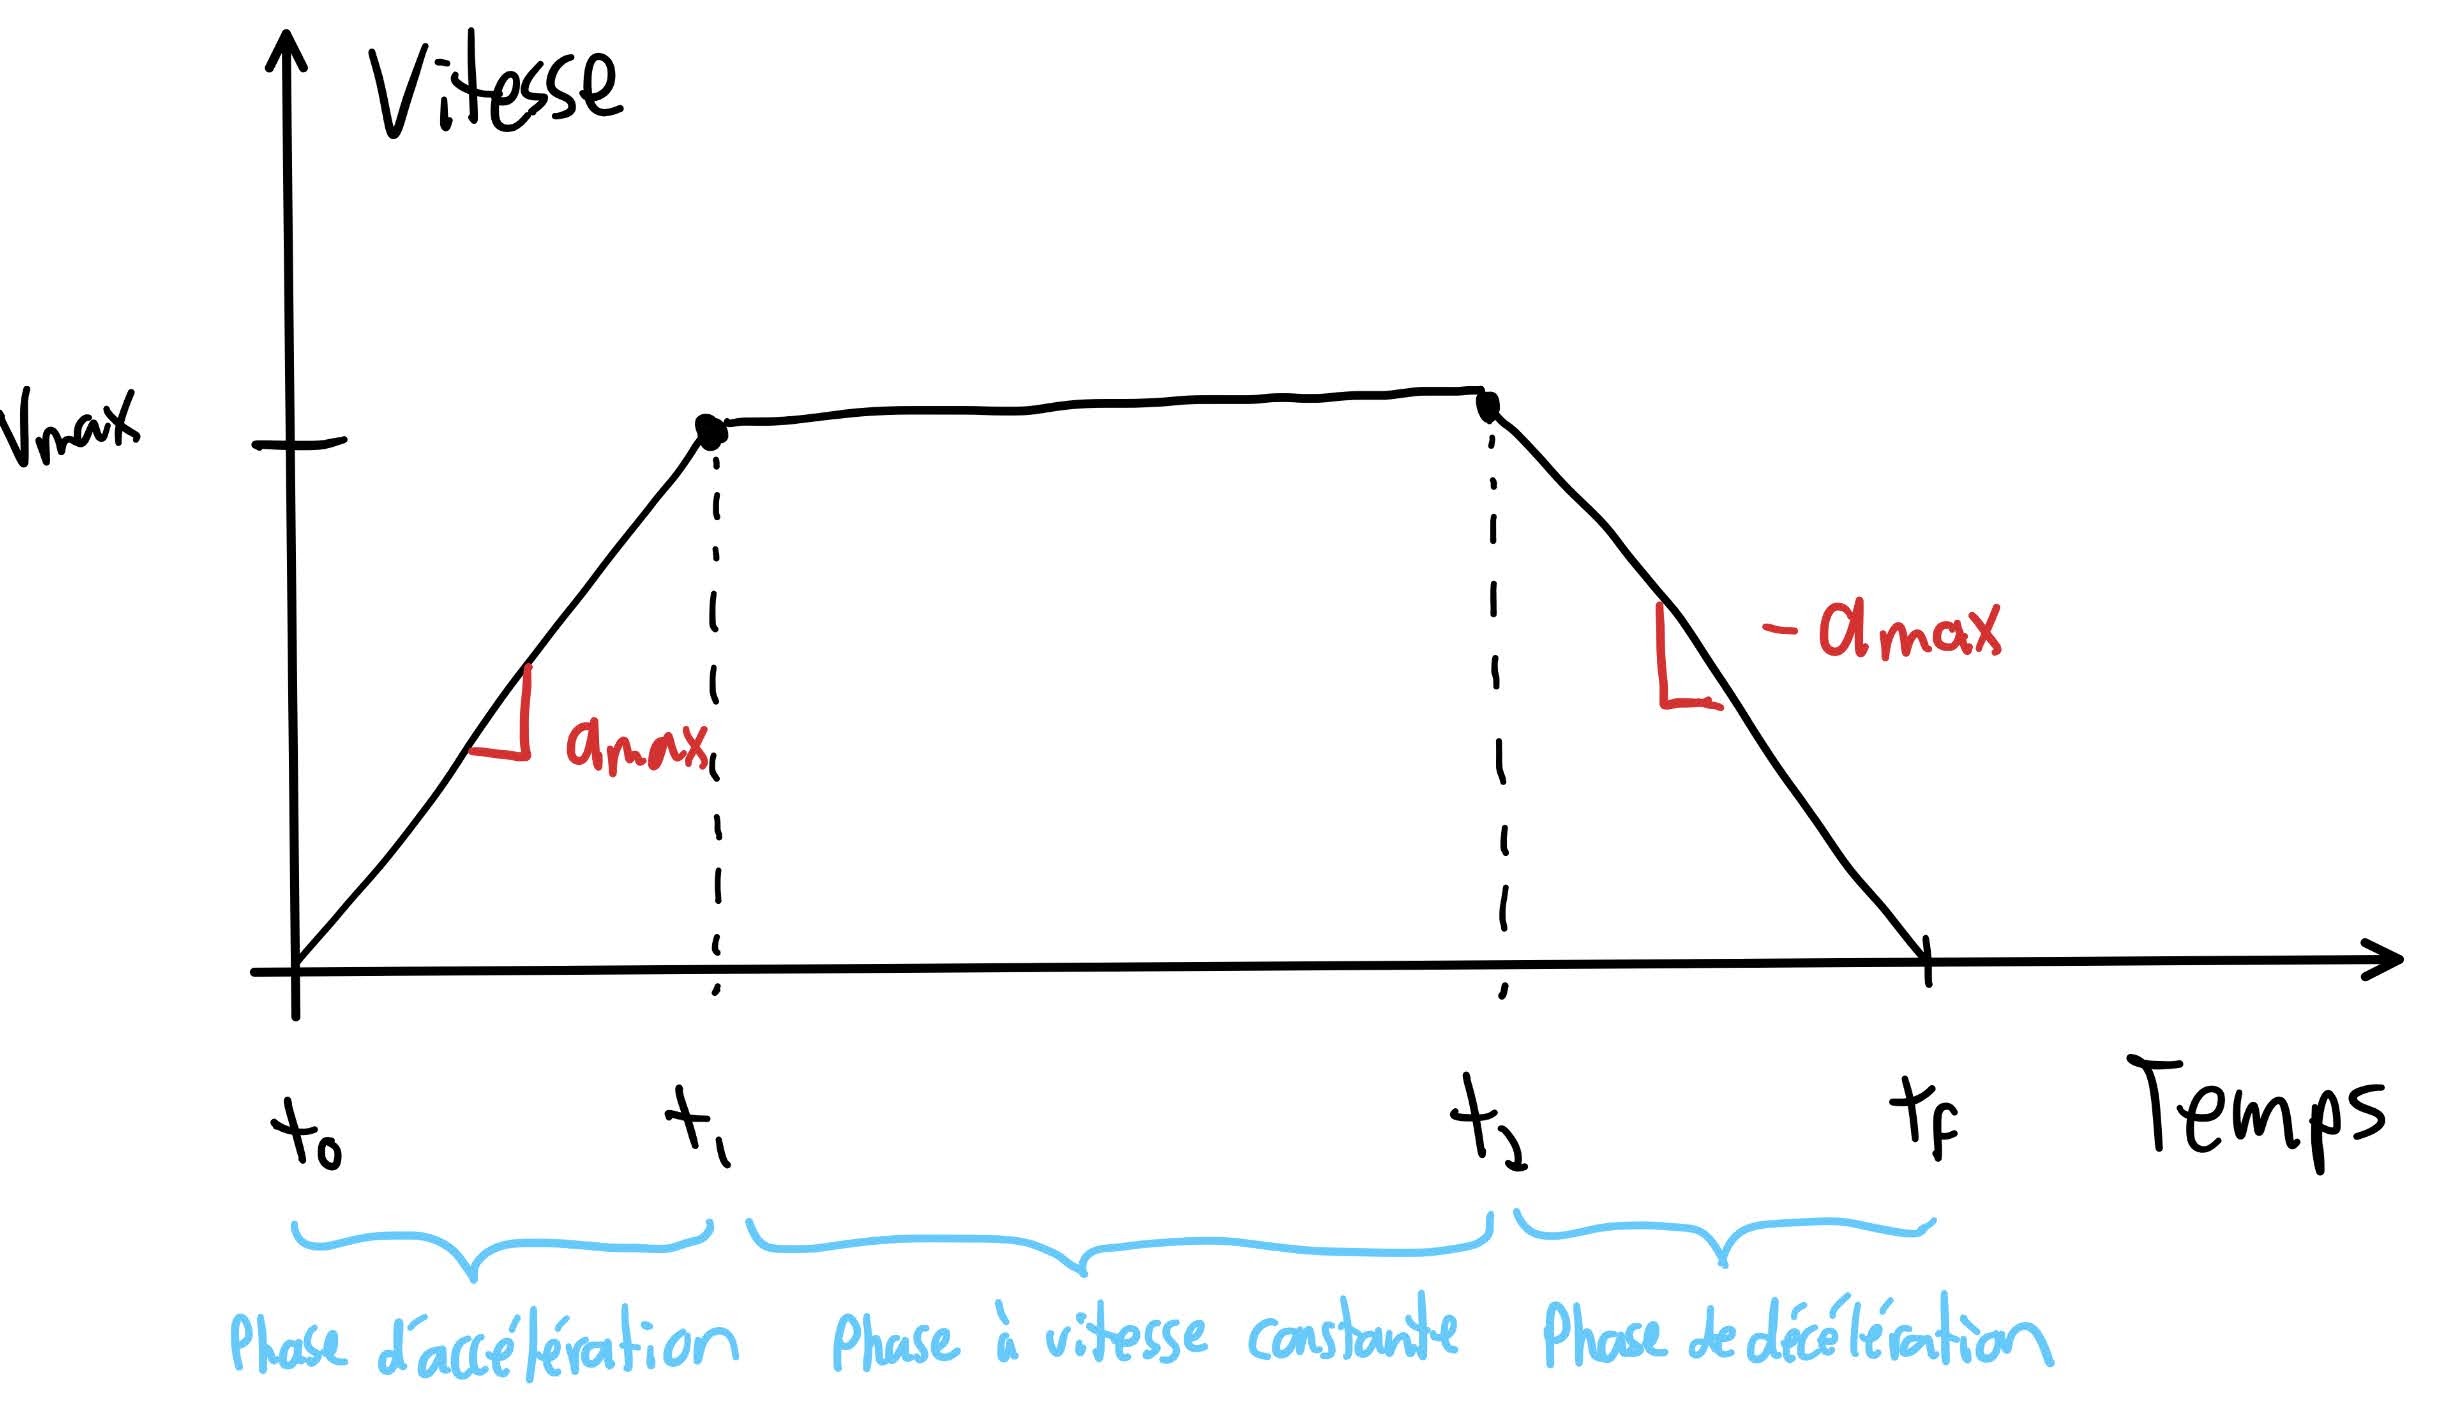 Vitesse
Vmax
- amax
amax
t0 t1 t2 tf Temps
Phase d'accélération Phase à vitesse constante Phase de décélération